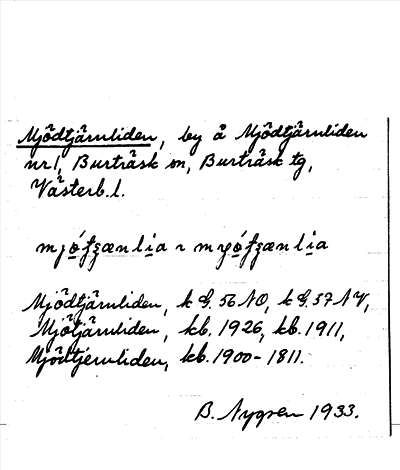 Mjödtjärnliden, by å Mjödtjärnliden
nr 1, Burträsk sn, Burträsk tg,
Västerb. l.
Mjödtjärnliden, k G. 56 NO, k G. 57 NV,
Mjötjärnliden, kb. 1926, kb. 1911,
Mjödtjernliden, kb. 1900-1811.
B. Nygren 1933.